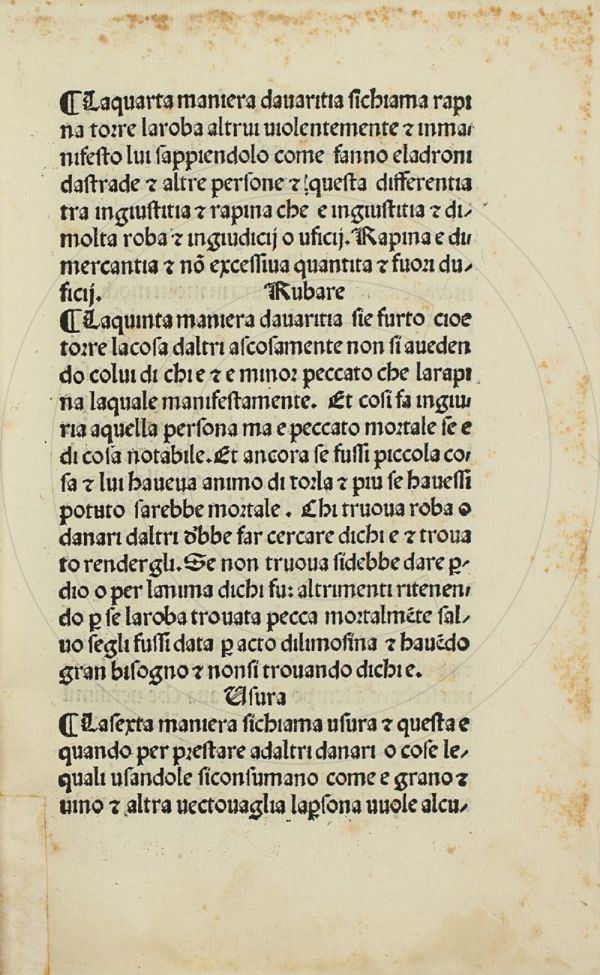 ¶Laquarta maniera dauaritia sichiama rapi
na torre laroba altrui uiolentemente ⁊ inma⸗
nifesto lui sappiendolo come fanno eladroni
dastrade ⁊ altre persone ⁊ questa differentia
tra ingiustitia ⁊ rapina che e ingiustitia ⁊ di⸗
molta roba ⁊ ingiudicij o uficij. Rapina e di
mercantia ⁊ nō excessiua quantita ⁊ fuori du⸗
ficij. Rubare
¶Laquinta maniera dauaritia sie furto cioe
torre lacosa daltri ascosamente non si aueden
do colui di chi e ⁊ e minor peccato che larapi
na laquale manifestamente. Et cosi fa ingiu
ria aquella persona ma e peccato mortale se e
di cosa notabile. Et ancora se fussi piccola co⸗
sa ⁊ lui haueua animo di torla ⁊ piu se hauessi
potuto sarebbe mortale. Chi truoua roba o
danari daltri dbbe far cercare dichi e ⁊ troua
to rendergli. Se non truoua sidebbe dare ꝑ⸗
dio o per lanima dichi fu: altrimenti ritenen⸗
do ꝑ se laroba trouata pecca mortalmēte sal⸗
uo segli fussi data ꝑ acto dilimosina ⁊ hauēdo
gran bisogno ⁊ nonsi trouando dichi e.
Usura
¶Lasexta maniera sichiama usura ⁊ questa e
quando per prestare adaltri danari o cose le⸗
quali usandole siconsumano come e grano ⁊
uino ⁊ altra uectouaglia laꝑsona uuole alcu⸗